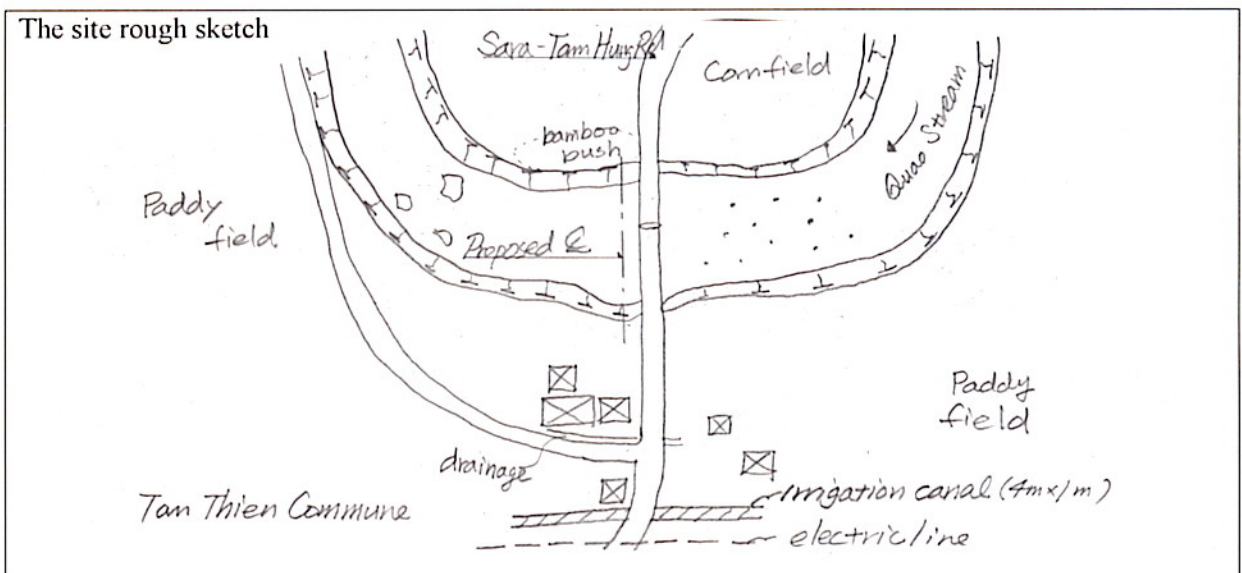 The site rough sketch
Sara-Tam Hung Rd
Cornfield
bamboo
bush
Quao Stream
Paddy
field
Proposed ℄
Paddy
field
drainage
Tan Thien Commune
irrigation canal (4m×1m)
electric line